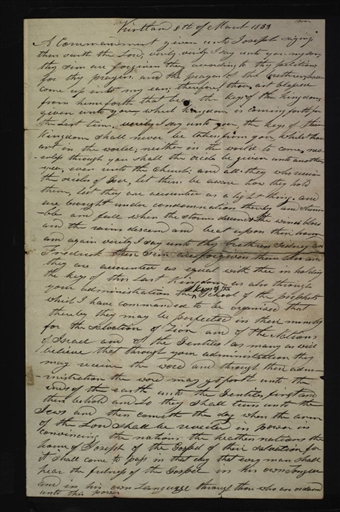 Kirtland 8th of March 1833
A Commandment given unto Joseph saying
thus saith the Lord, verily verily I say unto you my son
thy sins are forgiven thee according to thy petition
for thy prayers and the prayers of thy brethren have
come up into my ears therefore thou art blessed
from henceforth that bear the keys of the kingdom
given unto you which kingdom is coming forth for
the last time, verily I say unto you the keys of this
Kingdom shall never be taken from you while thou
art in the world, neither in the world to come, never
theless through you shall the oracles be given unto another
yea, even unto the Church; and all they who receive
the oracles of God, let them beware how they hold
them, lest they are accounted as a light thing and
are brought under condemnation thereby and stum
ble and fall when the storms descend & the winds blow
and the rains descend and beat upon their house
and again verily I say unto thy brethren Sidney and
Frederick their sins are forgiven them also and
they are accounted as equal with thee in holding
the keys of this last Kingdom as also through
your administration the keys of the School of the prophets
which I have commanded to be organized that
thereby they may be perfected in their ministry
for the Salvation of Zion and of the Nations
of Israel and of the Gentiles as many as will
believe that through your administration they
may receive the word and through their admi-
nistration the word may go forth unto the
ends of the earth unto the Gentiles first and
then behold and lo they shall turn unto the
Jews and then cometh the day when the arm
of the Lord shall be revealed in power in
convincing the nations the heathen nations the
house of Joseph of the Gospel of their salvation for
it shall come to pass in that day that every man shall
hear the fulness of the Gospel in his own tongue
and in his own Language through those who are ordained
unto this power